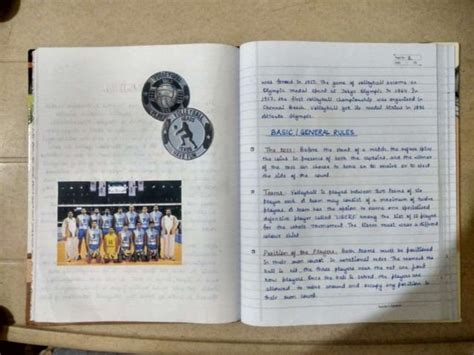 VOLLEYBALL
VOLLEYBALL
was formed in 1955. The game of volleyball become an
Olympic medal sport at Tokyo Olympic in 1964. In
the first volleyball championship was organised in
Beach Volleyball got its medal status in 1996
Atlanta Olympic.
BASIC / GENERAL RULES
The Toss: Before the start of a match the referee
the coin in presence of both the captains, and the winner
of the toss can choose to serve or to receive or to elect
the side of the court.
Teams: Volleyball is played between two teams of six
players each. A team may consist of a maximum of twelve
players. A team has the option to name one specialized
defensive player called 'LIBERO' among the of 12 players
for the whole tournament. The libero must wear a different
colour shirt.
Position of the Players: Both teams must be positioned
in their own court in rotational order. The moment the
ball is hit, the three players near the net are front
row players. Once the ball is served, the players are
allowed to move around and occupy any position in
their own court.